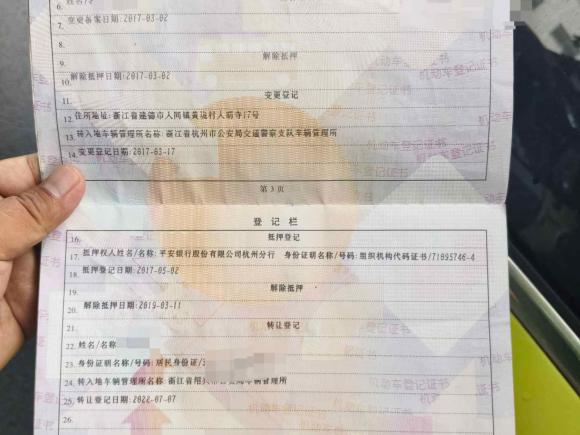 6. 姓名/
7. 变更备案日期:2017-03-02
8.
9. 解除抵押
10. 解除抵押日期:2017-03-02
11. 变更登记
12. 住所地址:浙江省建德市大同镇黄垅村大荫寺17号
13. 转入地车辆管理所名称:浙江省杭州市公安局交通警察支队车辆管理所
14. 变更登记日期:2017-03-17
第3页
登记栏
16. 抵押登记
17. 抵押权人姓名/名称:平安银行股份有限公司杭州分行 身份证明名称/号码:组织机构代码证书/71095746-4
18. 抵押登记日期:2017-05-02
19. 解除抵押
20. 解除抵押日期:2019-03-11
21. 转让登记
22. 姓名/名称
23. 身份证明名称/号码:居民身份证/
24. 转入地车辆管理所名称:浙江省绍兴市公安局车辆管理所
25. 转让登记日期:2022-07-07
26.
机动车登记证书